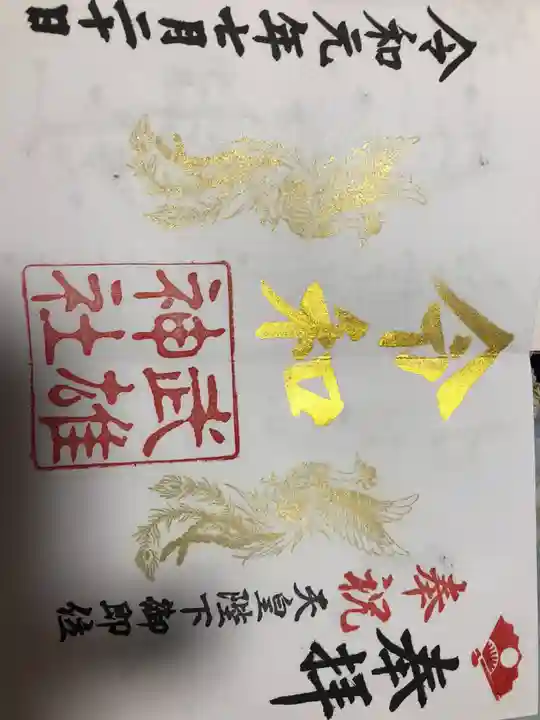 奉拝
奉祝 天皇陛下御即位
令和
武雄
神社
令和元年七月二十日